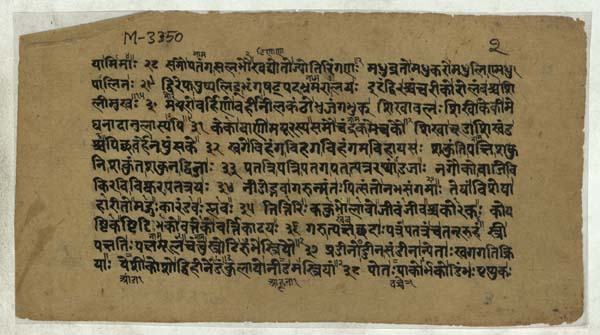 M-3350
२
यामिमाः २८ समौपतंगसलभौखद्योतोज्योतिरिंगणः मधुव्रतोमधुकरोमधुलिण्मधु
पालिनः २९ द्विरेफपुष्पलिड्भृंगषट्पदभ्रमरालयः
लीमुखः ३० मयूरोबर्हिणोबर्हीनीलकंठोभुजंगभुक् शिखावलः शिखीकेकीमे
घनादानुलास्यपि ३१ केकावाणीमयूरस्यसमौचंद्रकमेचकौ शिखाचूडाशिखंड
पिछबर्हेनपुंसके ३२ खगेविहंगविहगविहंगमविहायसः शकुंतिपक्षिशकु
निशकुंतशकुनद्विजाः ३३ पतत्रिपत्रिपतगपतत्पत्ररथांडजाः नगौकोवाजिवि
किरविविष्किरपतत्रयः ३४ नीडोद्भवागरुत्मंतः पित्संतोनभसंगमाः तेषांविशेषा
हारीतोमद्गुः कारंडवः प्लवः ३५ तित्तिरिः कुक्कुभोलावोजीवंजीवश्चकोरकः कोय
ष्टिकष्टिट्टिभकोवर्तकोवर्तिकादयः ३६ गरुत्पक्षछदाः पत्रंपतत्रंचतनूरुहं स्त्री
पक्षतिः पक्षमूलंचंचुस्त्रोटिरुभेस्त्रियौ ३७ प्रडीनोड्डीनसंडीनान्येताः खगगतिक्रि
याः पेशीकोशोद्विहीनेंडंकुलायोनीडमस्त्रियां ३८ पोतः पाकोर्भकोडिंभः पृथुकः